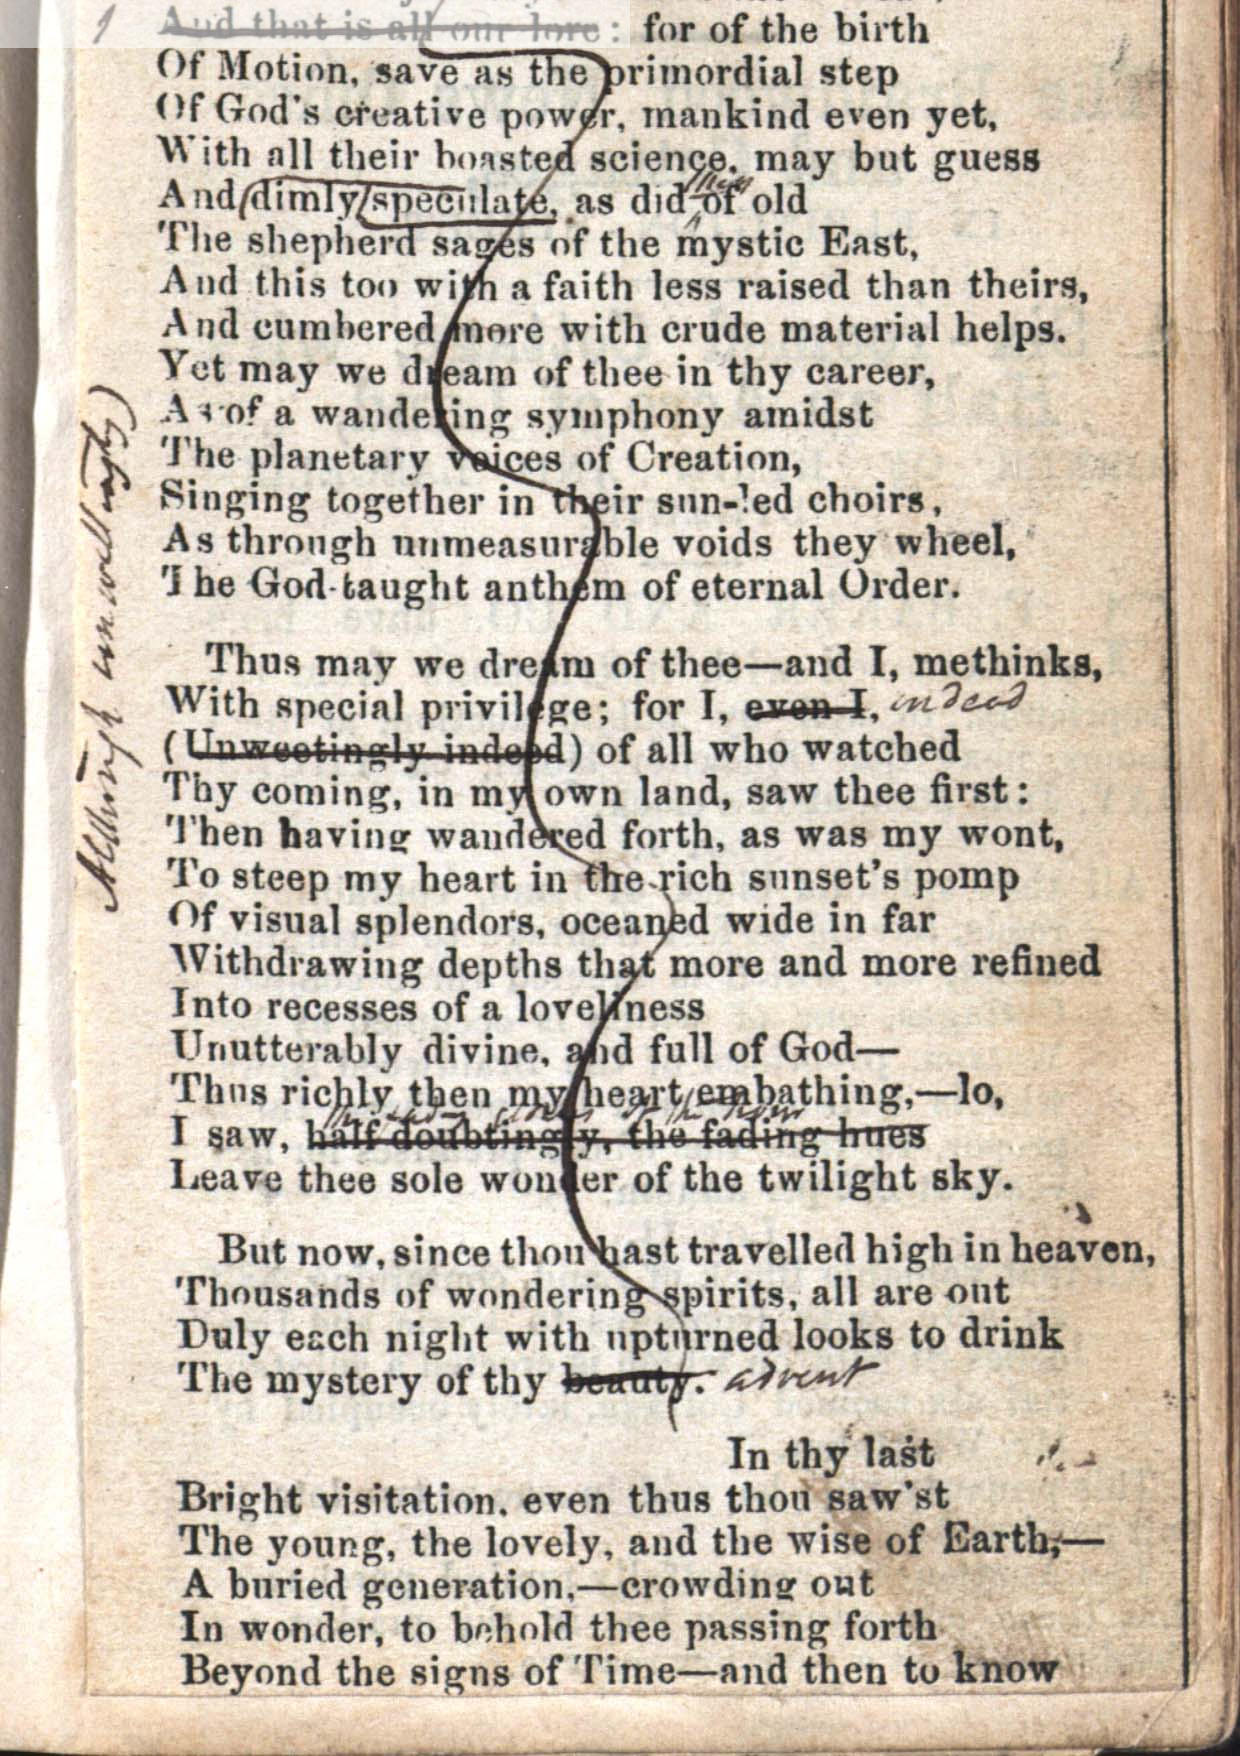 And that is all our lore: for of the birth
Of Motion, save as the primordial step
Of God's creative power, mankind even yet,
With all their boasted science, may but guess
And dimly speculate, as did of old
The shepherd sages of the mystic East,
And this too with a faith less raised than theirs,
And cumbered more with crude material helps.
Yet may we dream of thee in thy career,
As of a wandering symphony amidst
The planetary voices of Creation,
Singing together in their sun-led choirs,
As through unmeasurable voids they wheel,
The God-taught anthem of eternal Order.
Thus may we dream of thee—and I, methinks,
With special privilege; for I, even I, indeed
(Unweetingly indeed) of all who watched
Although unwittingly)
Thy coming, in my own land, saw thee first:
Then having wandered forth, as was my wont,
To steep my heart in the rich sunset's pomp
Of visual splendors, oceaned wide in far
Withdrawing depths that more and more refined
Into recesses of a loveliness
Unutterably divine, and full of God—
Thus richly then my heart embathing,—lo,
the of the
I saw, half doubtingly, the fading hues
Leave thee sole wonder of the twilight sky.
But now, since thou hast travelled high in heaven,
Thousands of wondering spirits, all are out
Duly each night with upturned looks to drink
The mystery of thy beauty. advent
In thy last
Bright visitation, even thus thou saw'st
The young, the lovely, and the wise of Earth,—
A buried generation,—crowding out
In wonder, to behold thee passing forth
Beyond the signs of Time—and then to know